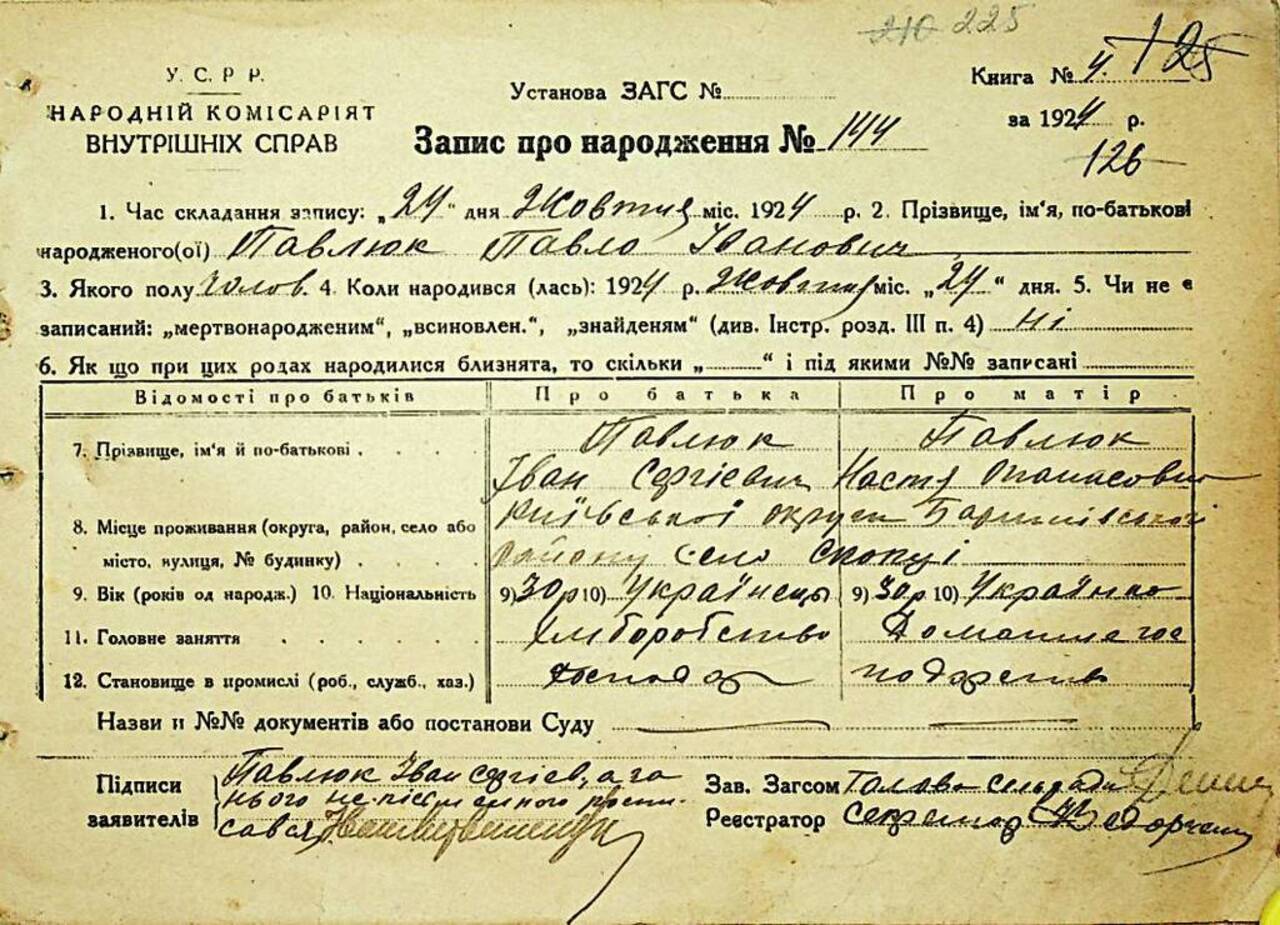 210 225
У. С. Р. Р.
НАРОДНІЙ КОМІСАРІЯТ
ВНУТРІШНІХ СПРАВ
Установа ЗАГС №
Книга № 4. 125
за 1924 р.
126
Запис про народження № 144
1. Час складання запису: „24“ дня Жовтня міс. 1924 р. 2. Прізвище, ім'я, по-батькові
народженого(ої) Павлюк Павло Іванович
3. Якого полу чолов. 4. Коли народився (лась): 1924 р. Жовтня міс. „24“ дня. 5. Чи не є
записаний: „мертвонародженим“, „всиновлен.“, „знайденям“ (див. Інстр. розд. III п. 4) ні
6. Як що при цих родах народилися близнята, то скільки „ “ і під якими №№ записані
Відомості про батьків Про батька Про матір
7. Прізвище, ім'я й по-батькові Павлюк Павлюк
Іван Сергієвич Настя Опанасовна
8. Місце проживання (округа, район, село або Київської округи Баришівської
місто, вулиця, № будинку) району село Скопці
9. Вік (років од народж.) 10. Національність 9) 30 р 10) Українець 9) 30 р 10) Українка
11. Головне заняття Хліборобство Домашнє гос
12. Становище в промислі (роб., служб., хаз.) Господар подарство
Назви и №№ документів або постанови Суду
Підписи заявителів Павлюк Іван Сергієв, а за
нього не письменного роспи-
сався
Зав. Загсом Голова сельради
Реєстратор Секретар